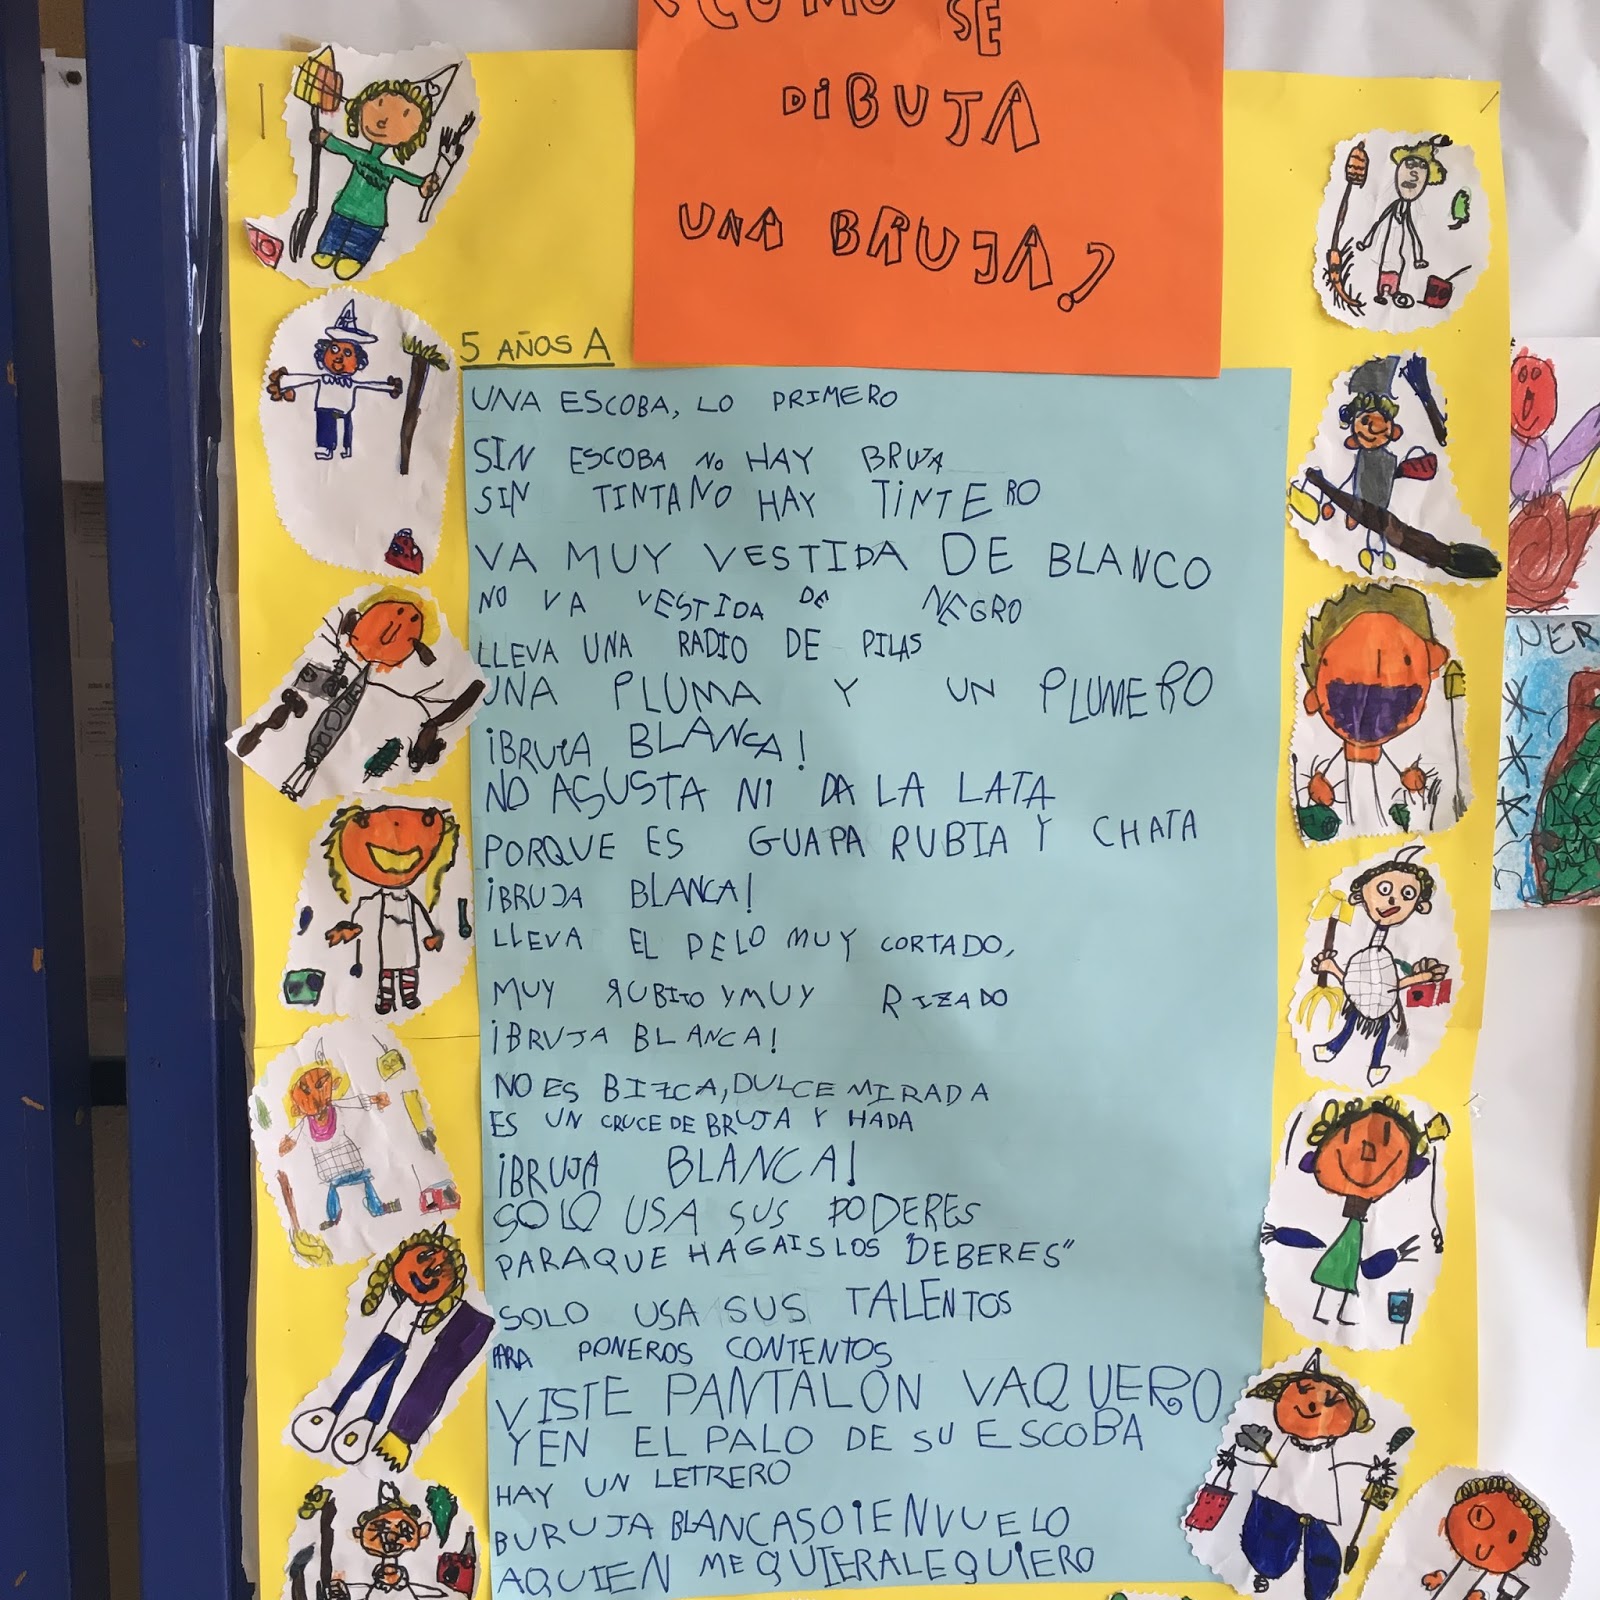 ¿COMO SE
DIBUJA
UNA BRUJA?
5 AÑOS A
UNA ESCOBA, LO PRIMERO
SIN ESCOBA NO HAY BRUJA
SIN TINTA NO HAY TINTERO
VA MUY VESTIDA DE BLANCO
NO VA VESTIDA DE NEGRO
LLEVA UNA RADIO DE PILAS
UNA PLUMA Y UN PLUMERO
¡BRUJA BLANCA!
NO ASUSTA NI DA LA LATA
PORQUE ES GUAPA RUBIA Y CHATA
¡BRUJA BLANCA!
LLEVA EL PELO MUY CORTADO,
MUY RUBITO Y MUY RIZADO
¡BRUJA BLANCA!
NO ES BIZCA, DULCE MIRADA
ES UN CRUCE DE BRUJA Y HADA
¡BRUJA BLANCA!
SOLO USA SUS PODERES
PARAQUE HAGAIS LOS "DEBERES"
SOLO USA SUS TALENTOS
PARA PONEROS CONTENTOS
VISTE PANTALÓN VAQUERO
Y EN EL PALO DE SU ESCOBA
HAY UN LETRERO
BURUJA BLANCA SOI EN VUELO
A QUIEN ME QUIERA LE QUIERO
NER